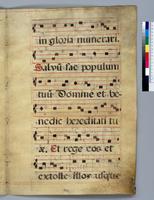 in gloria numerari.
Salvū fac populum
tuū Domine et be-
nedic hereditati tu
æ. Et rege eos et
extolle illos usque